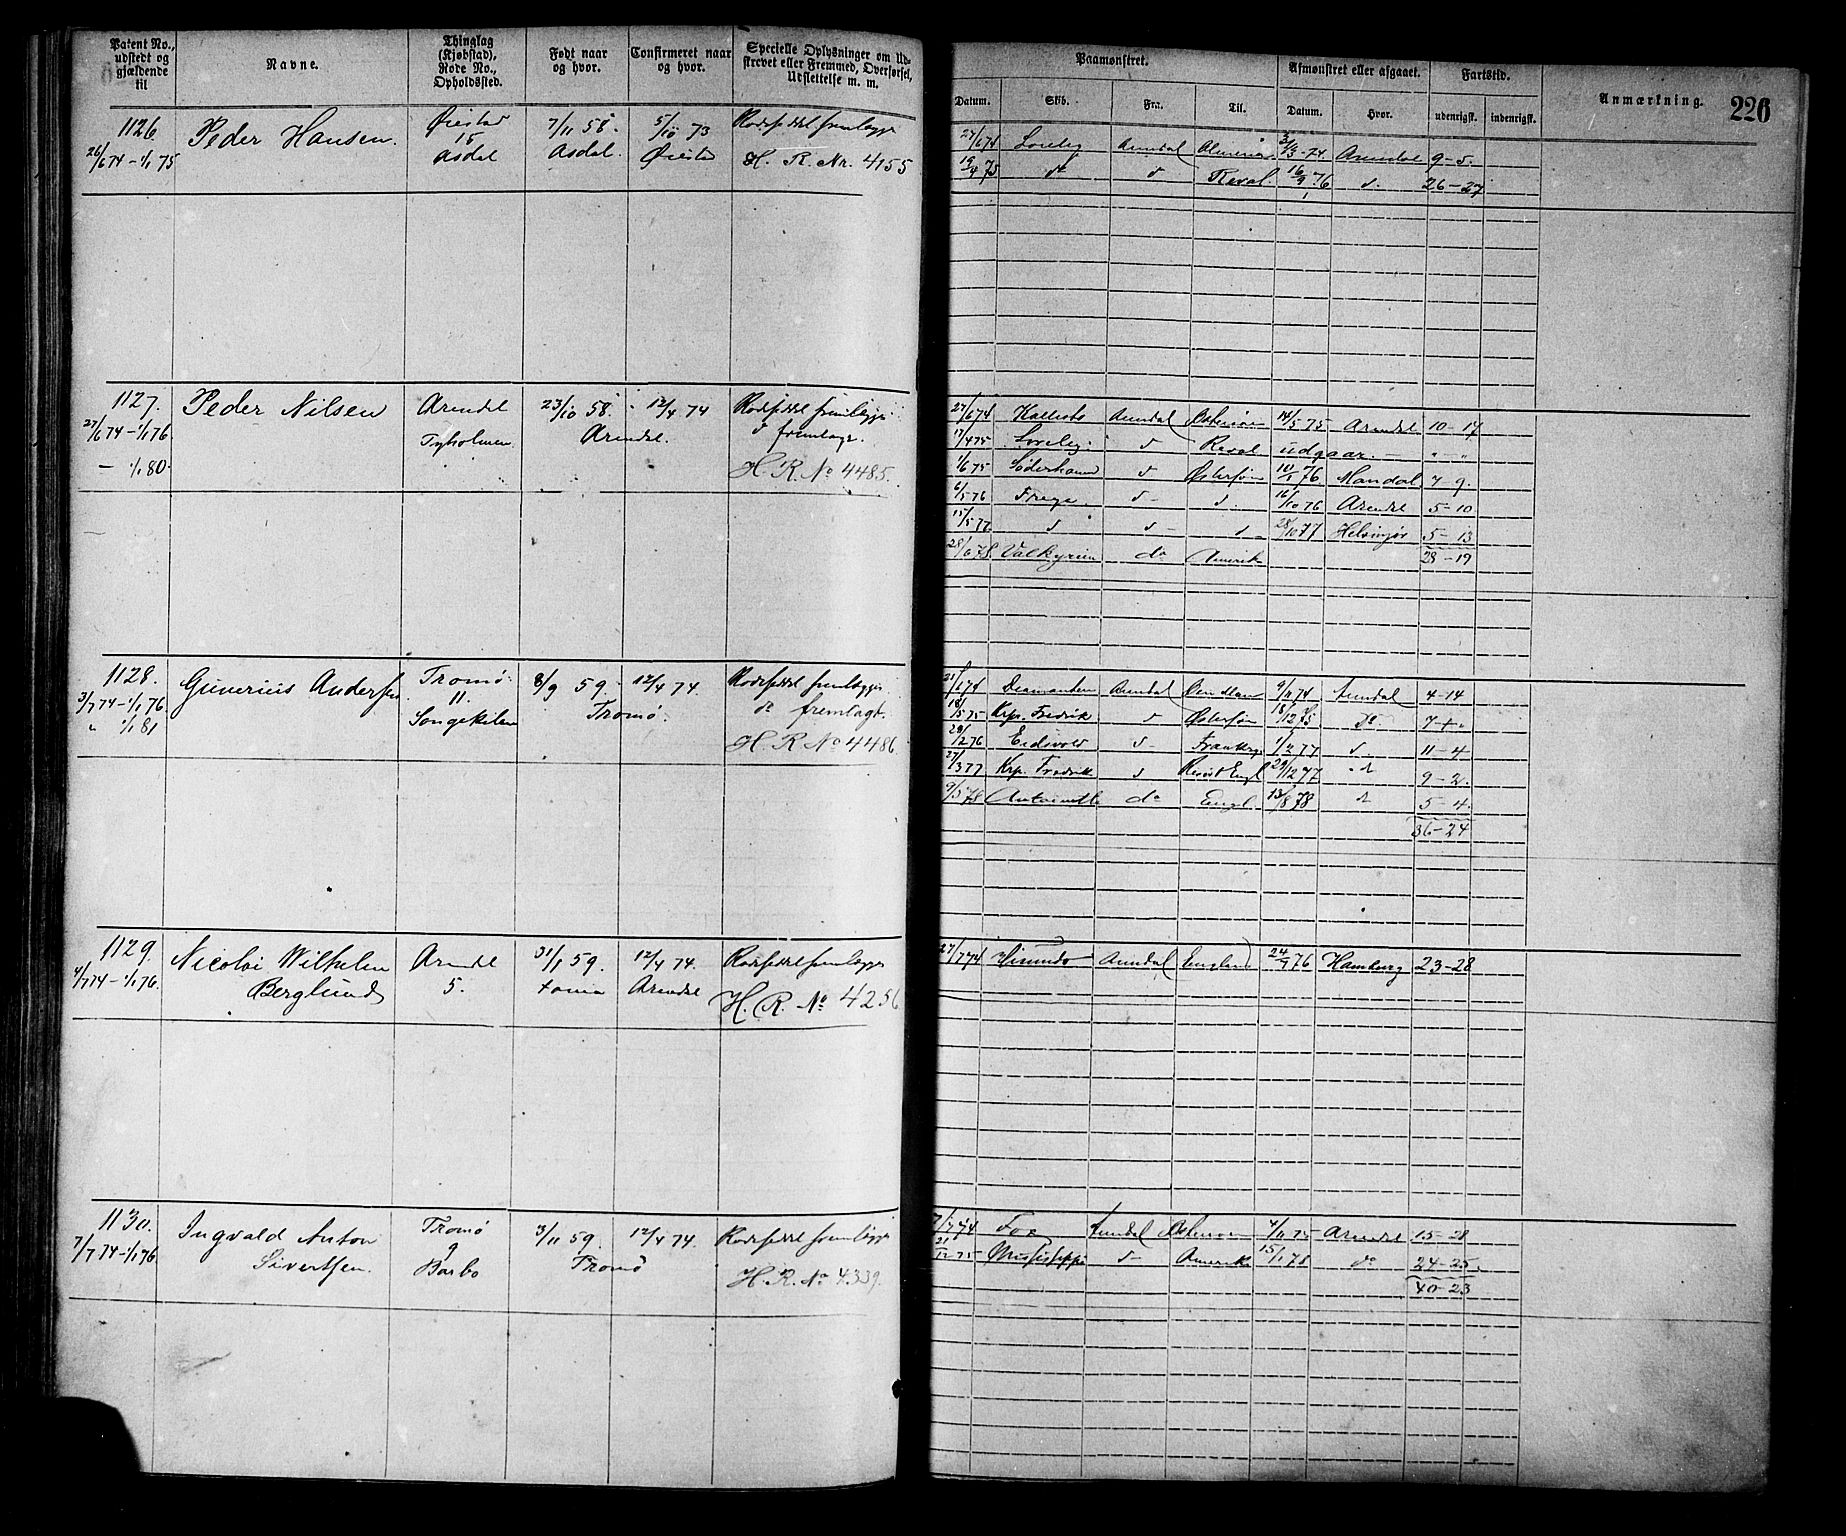 Patent No., udstedt og gjældende til
Navne.
Thinglag (Kjøbstad), Rode No., Opholdssted.
Født naar og hvor.
Confirmeret naar og hvor.
Specielle Oplysninger om Udskrevet eller Fremmed, Overførsel, Udslettelse m. m.
Paamønstret.
Afmønstret eller afgaaet.
Fartstid.
Anmærkning.
226
Datum.
Skib.
Fra.
Til.
Datum.
Hvor.
udenrigsk.
indenrigsk.
1126
26/6 74 - 1/1 75
Peder Hansen.
Øiestad
15
Asdal
7/11 58.
Asdal.
5/10 73
Øiestad
Rodeseddel fremlagt
H. R. Nr. 4155
27/6 74 Loreley Arendal 74. Arendal 9-5.
19/4 75 do d Reval. 16/9 76 d. 26-27
1127.
27/6 74 - 1/1 76
— 1/1 80.
Peder Nilsen
Arendal
Tyholmen
23/10 58.
Arendal.
12/4 74
Rodeseddel fremlagt
d fremlagt.
H. R. No 4485.
27/6 74 Kallisto Arendal Østersøen 14/5 75 Arendal 10-17
17/4 75 Loreley. d Reval udgaar. — „ - „
1/6 75 Søderhamn d Østersøen 10/1 76 Mandal 7-9.
6/5 76 Freya d- d. 16/10 76 Arendal 5-10
15/5 77 d d- d 28/10 77 Helsingør 5-13
28-19
28/6 78 Valkyrien do Amerika
1128.
3/7 74 - 1/1 76
„ 1/1 81
Guverius Andersen
Tromø
11.
Songekilen
8/9 59.
Tromø.
12/4 74.
Rodeseddel fremlagt
do fremlagt.
H. R. No 4486
Diamanten Arendal 9/11 74 Arendal 4-14
18/5 75 Krp. Fredrik d Østersøen 18/12 75 Do
29/2 76 Eidsvold d- 1/2 77 d. 11-4
27/3 77 Krp. Fredrik d Engl 29/12 77 d 9-2.
9/5 78 do Engl 13/8 78 d 5-4.
36-24
1129.
4/7 74 - 1/1 76.
Nicolai Wilhelm
Berglund
Arendal
5.
31/1 59.
12/4 74.
Arendal
Rodeseddel fremlagt
H. R. No 4256
27/7 74 Arendal England 24/7 76 Hamburg 23-28
1130.
7/7 74 - 1/1 76
Ingvald Anton
Sivertsen.
Tromø
9
Barbo
3/11 59.
Tromø
12/4 74.
Rodeseddel fremlagt
H. R. No 4339.
7/7 74 Fox Arendal Østersøen 4/11 75 Arendal 15-28
75 Missisippi d- Amerika 15/1 78 do 24-25.
40-23